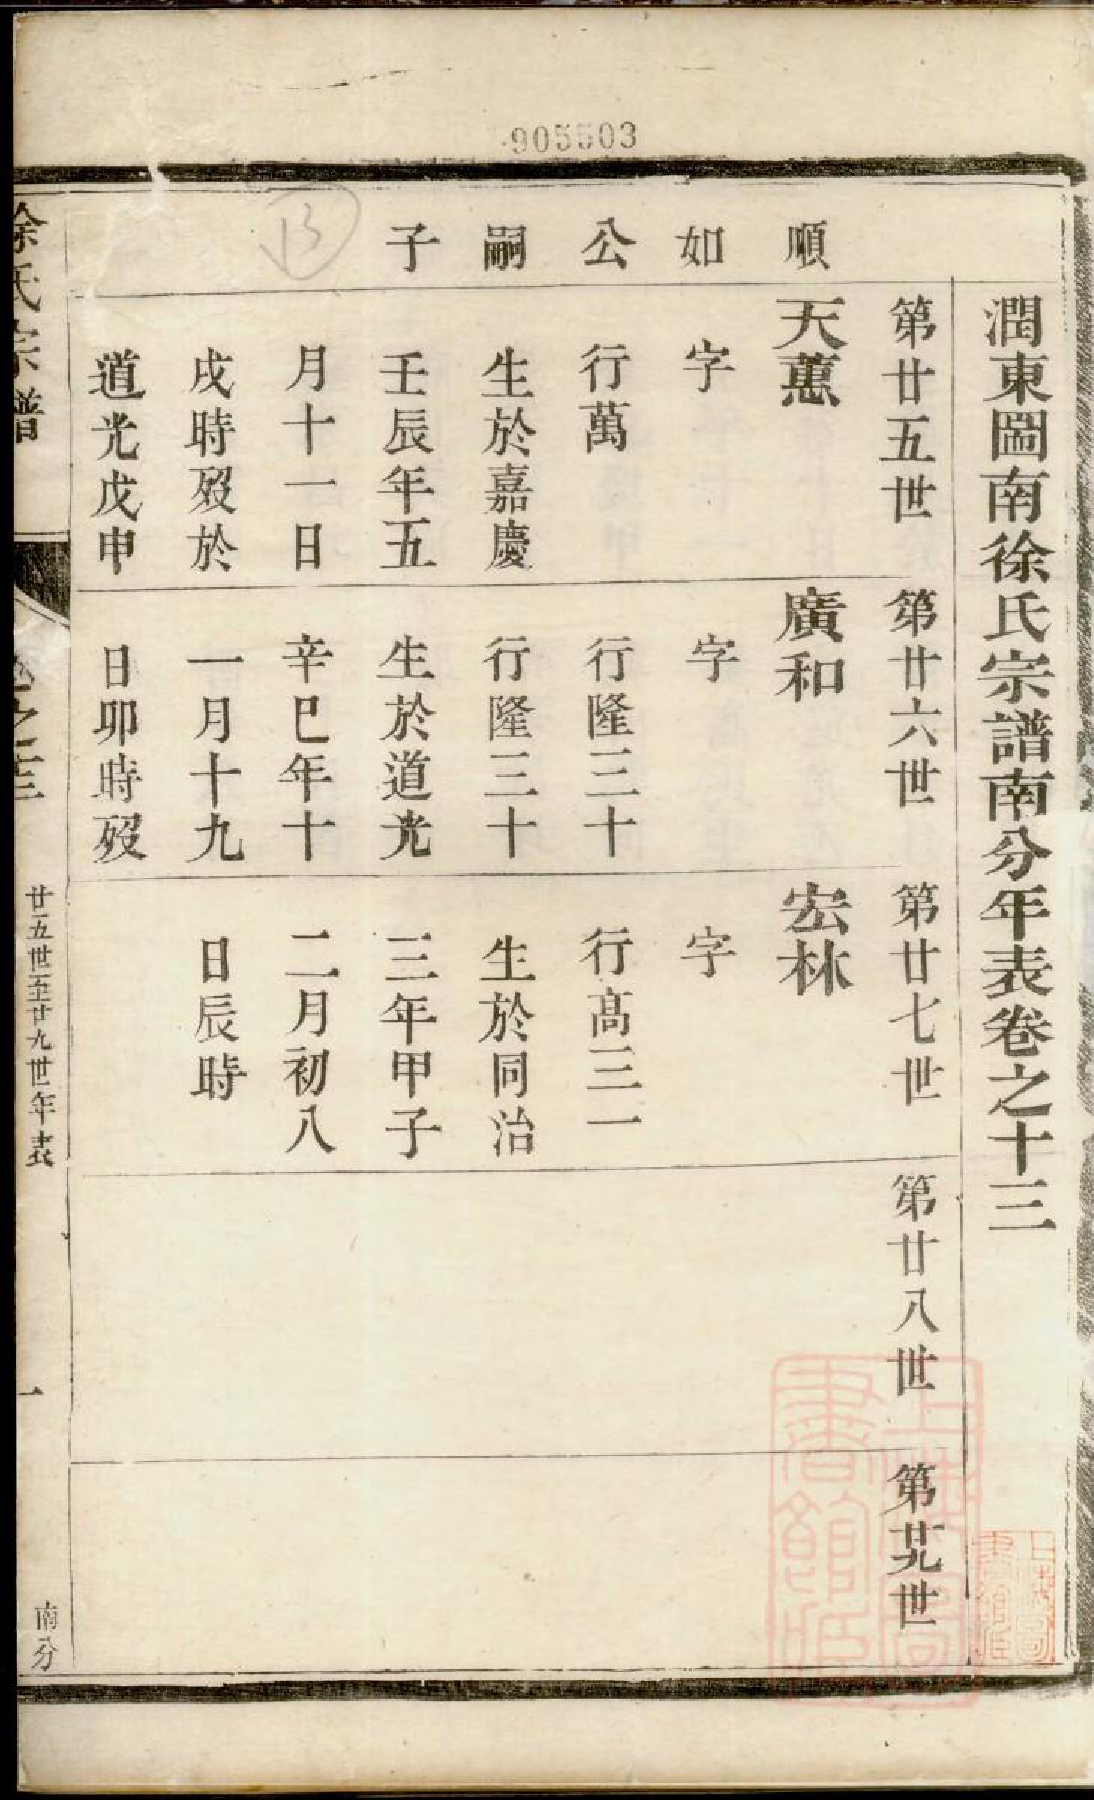 905503
潤東圌南徐氏宗譜南分年表卷之十三
第廿五世
第廿六世
第廿七世
第廿八世
第廿九世
順如公嗣子
天蕙
字
行萬
生於嘉慶
壬辰年五
月十一日
戌時歿於
道光戊申
廣和
字
行隆三十
行隆三十
生於道光
辛巳年十
一月十九
日卯時歿
宏林
字
行高三一
生於同治
三年甲子
二月初八
日辰時
13
徐氏宗譜
卷之十三
廿五世至廿九世年表
一
南分
上海圖書館藏
上海圖書館藏